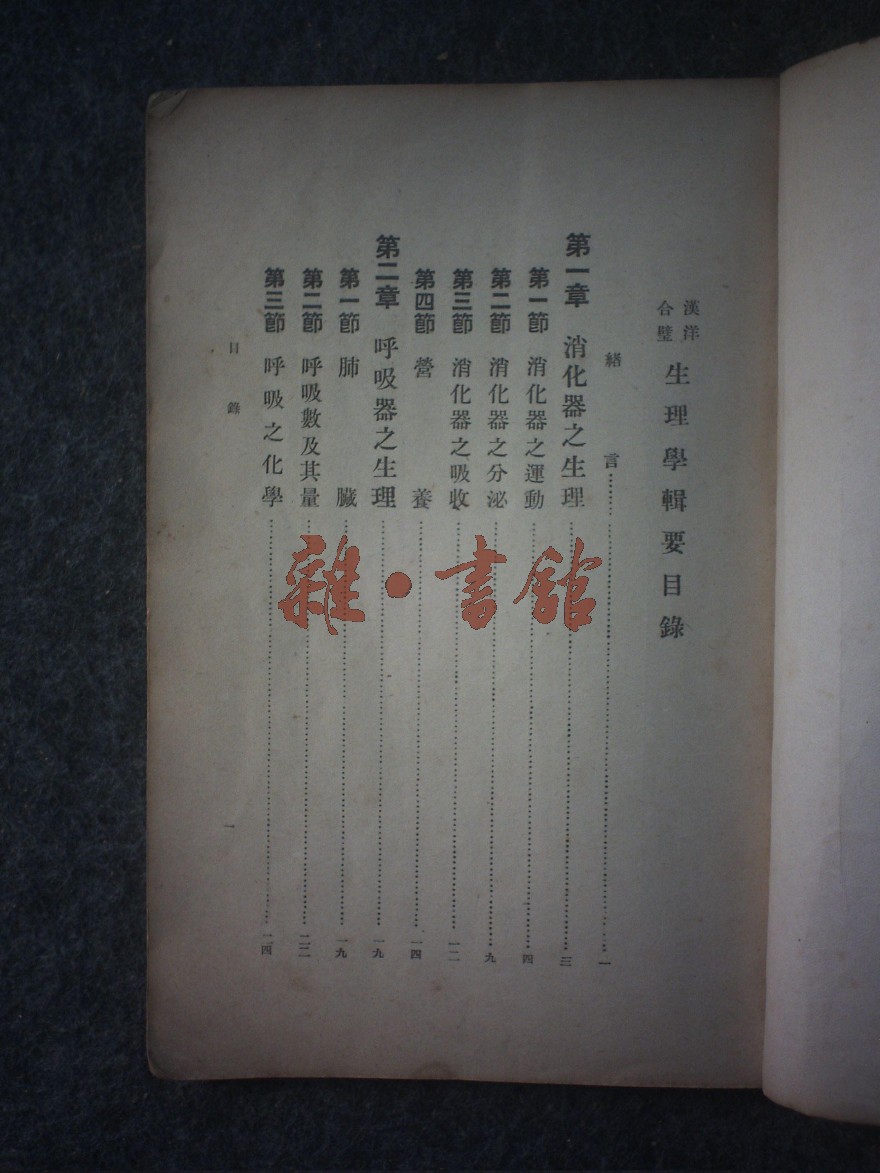 漢洋合璧 生理學輯要目錄
緒言………一
第一章 消化器之生理………三
第一節 消化器之運動………四
第二節 消化器之分泌………九
第三節 消化器之吸收………一二
第四節 營養………一四
第二章 呼吸器之生理………一九
第一節 肺臟………一九
第二節 呼吸數及其量………二二
第三節 呼吸之化學………二四
目錄 一
雜·書館